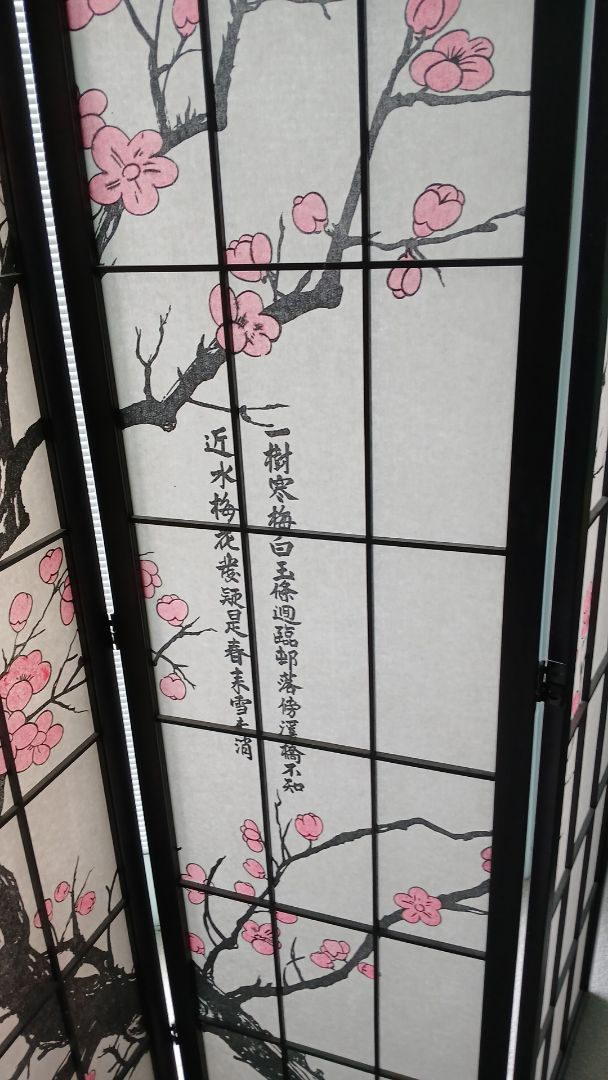 一樹寒梅白玉條逈臨邨落傍溪橋不知
近水梅花發疑是春来雪未消